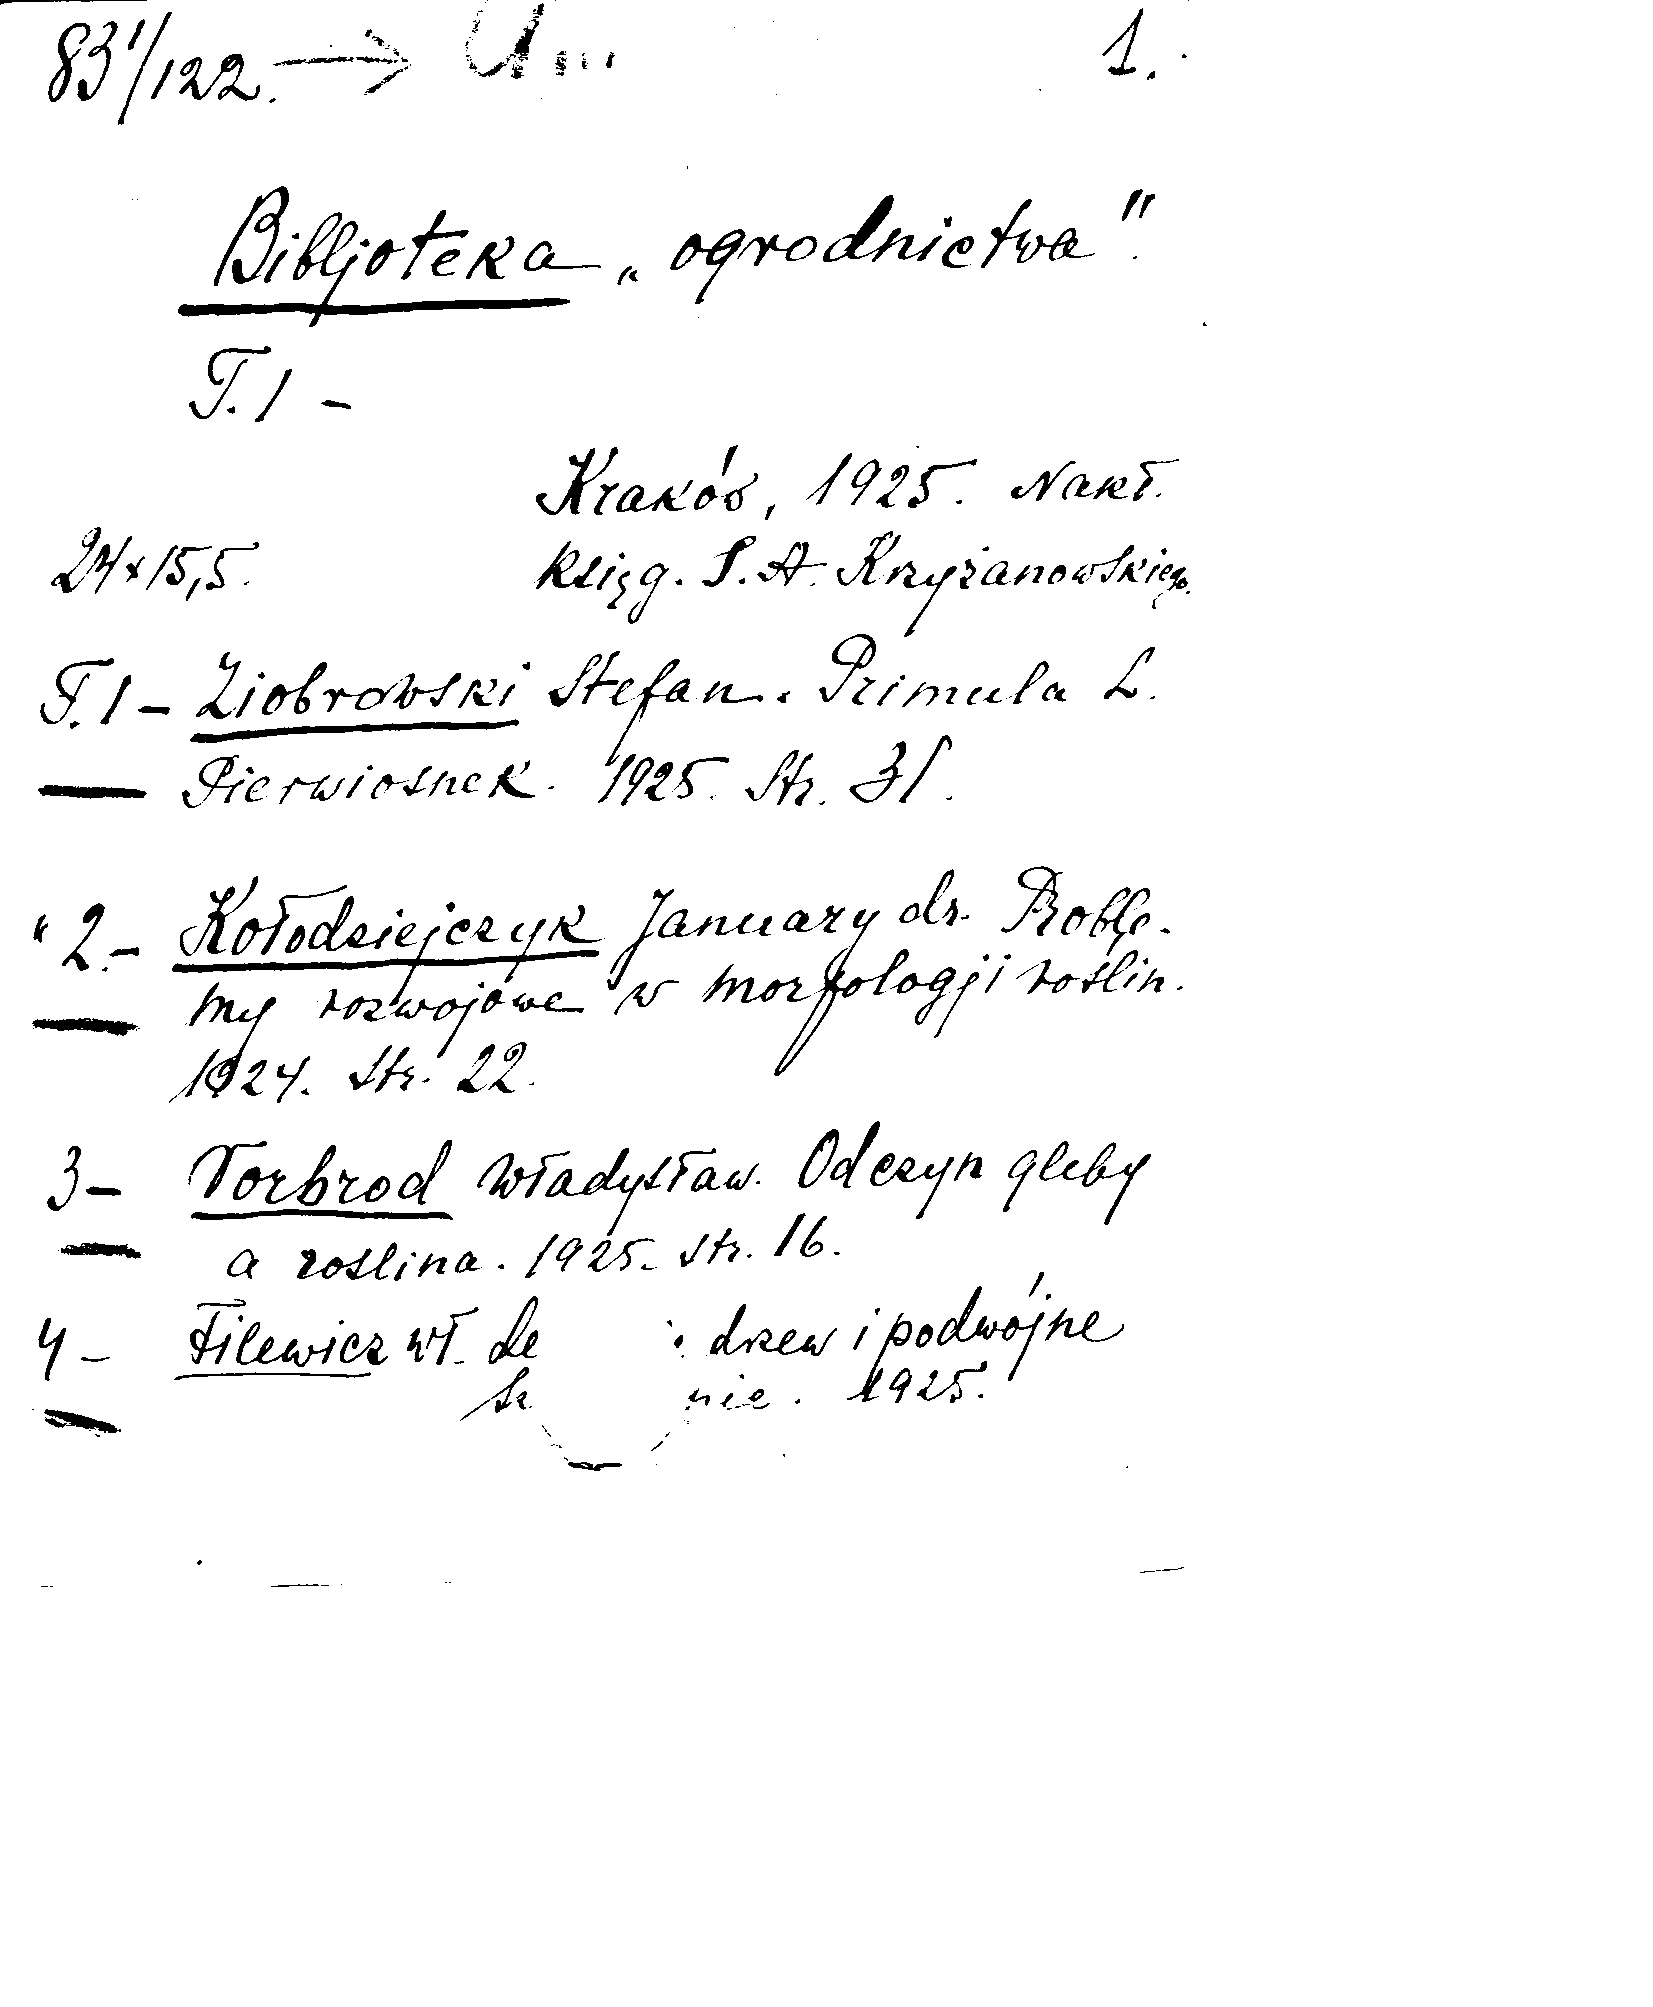 83¹/122. → U... 1.
Bibljoteka „ogrodnictwa".
T. 1 –
Kraków, 1925. Nakł.
24×15,5. księg. S. A. Krzyżanowskiego.
T. 1 – Ziobrowski Stefan. Primula L.
Pierwiosnek. 1925. Str. 31.
" 2. – Kołodziejczyk January dr. Proble-
my rozwojowe w morfologji roślin.
1924. Str. 22.
3 – Vorbrod Władysław. Odczyn gleby
a roślina. 1925. Str. 16.
4 – Filewicz Wł. drzew i podwójne
nie. 1925.